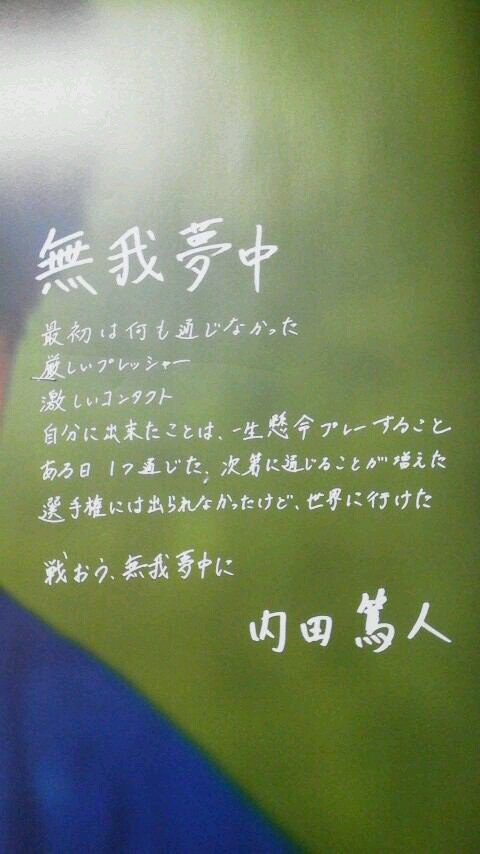 無我夢中
最初は何も通じなかった
厳しいプレッシャー
激しいコンタクト
自分に出来たことは、一生懸命プレーすること
ある日1つ通じた、次第に通じることが増えた
選手権には出られなかったけど、世界に行けた
戦おう、無我夢中に
内田篤人